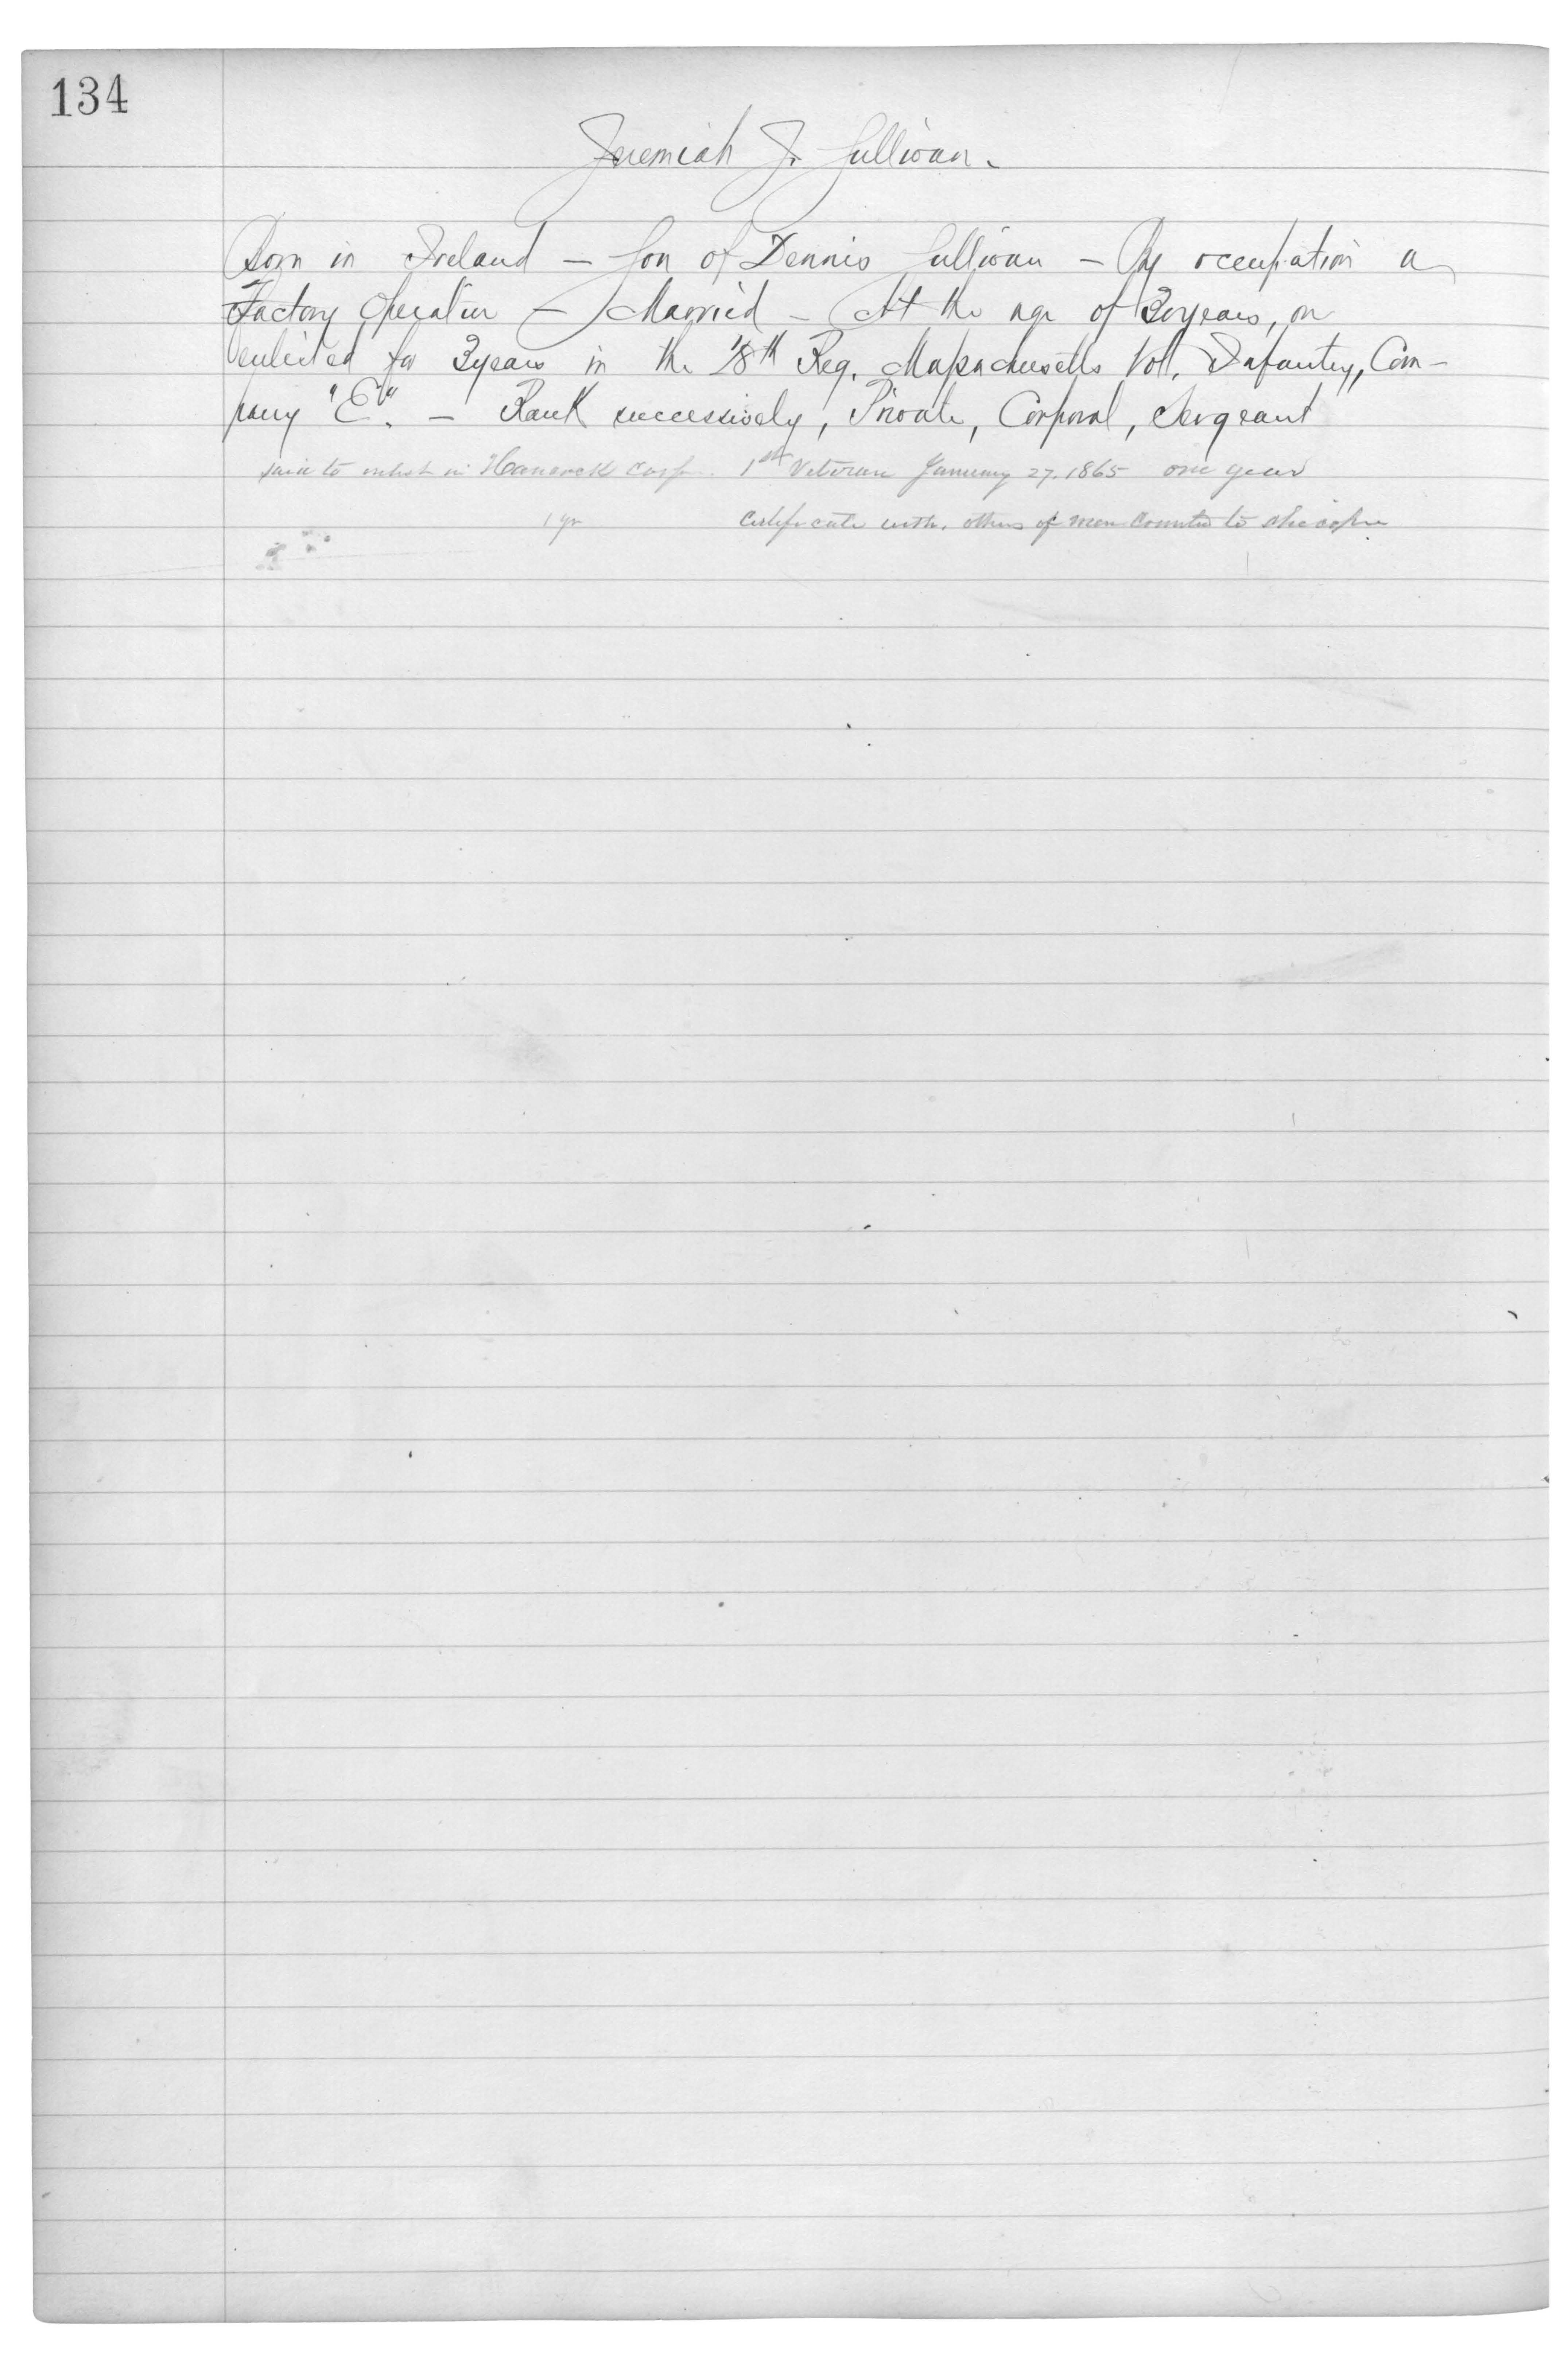 134
Jeremiah J. Sullivan.
Born in Ireland – Son of Dennis Sullivan – By occupation a
Factory Operative – Married – At the age of 30 years, on
enlisted for 3 years in the 18th Reg. Massachusetts Vol. Infantry, Com-
pany "E". – Rank successively, Private, Corporal, Sergeant
said to enlist in Hancock Corps. 1st Veteran January 27. 1865 one year
1 yr Certificate with. others of men counted to